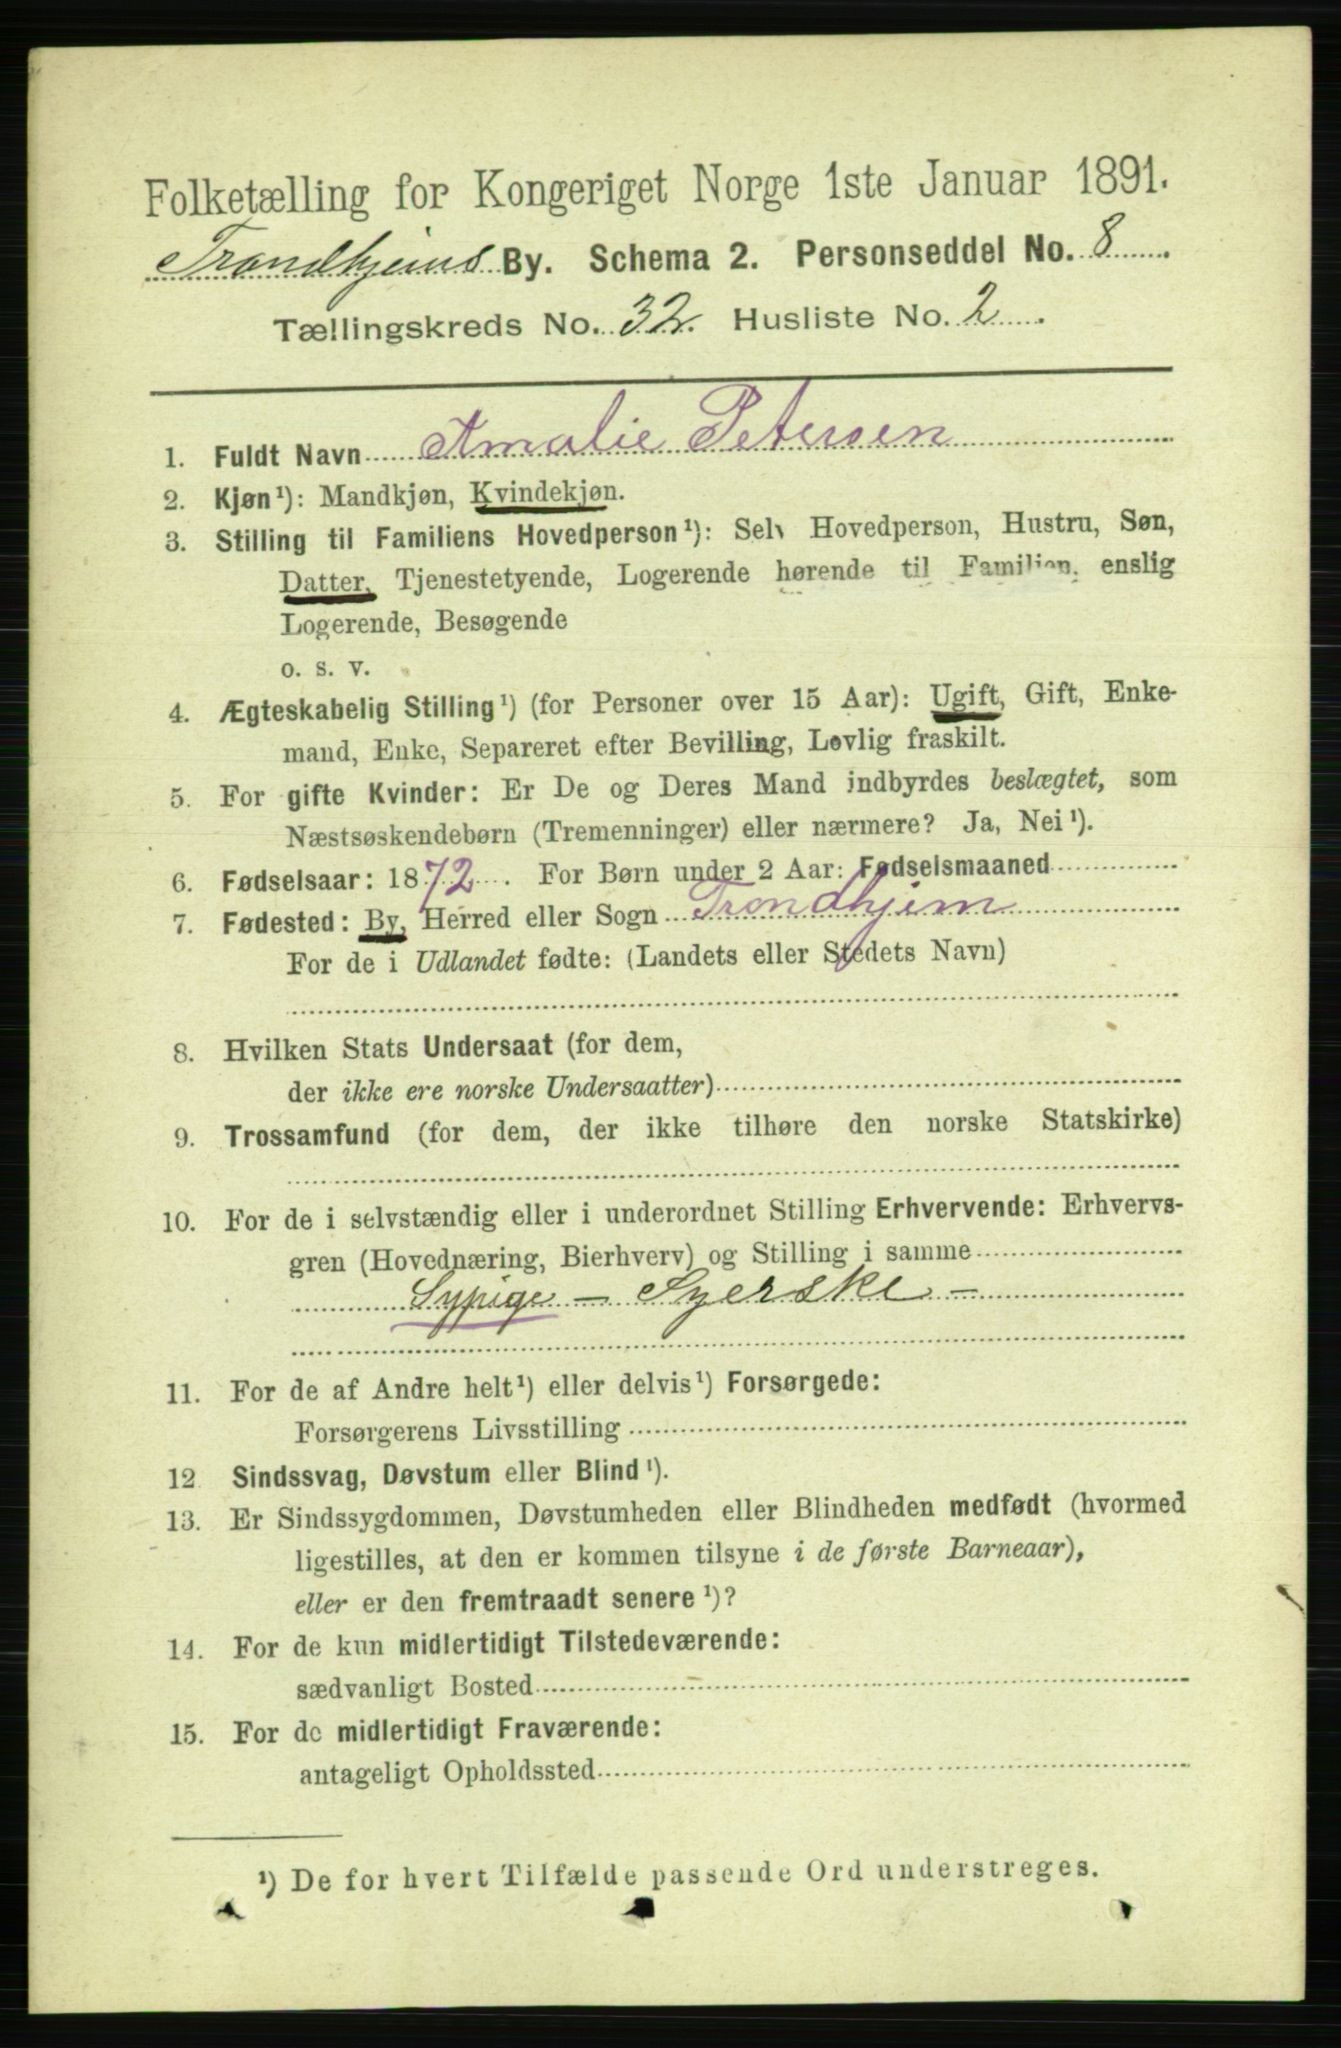 Folketælling for Kongeriget Norge 1ste Januar 1891.
Trondhjems By. Schema 2. Personseddel No. 8
Tællingskreds No. 32. Husliste No. 2
1. Fuldt Navn Amalie Petersen
2. Kjøn¹): Mandkjøn, Kvindekjøn.
3. Stilling til Familiens Hovedperson¹): Selv Hovedperson, Hustru, Søn,
Datter, Tjenestetyende, Logerende hørende til Familien, enslig
Logerende, Besøgende
o. s. v.
4. Ægteskabelig Stilling¹) (for Personer over 15 Aar): Ugift, Gift, Enke-
mand, Enke, Separeret efter Bevilling, Lovlig fraskilt.
5. For gifte Kvinder: Er De og Deres Mand indbyrdes beslægtet, som
Næstsøskendebørn (Tremenninger) eller nærmere? Ja, Nei¹).
6. Fødselsaar: 1872. For Børn under 2 Aar: Fødselsmaaned
7. Fødested: By, Herred eller Sogn Trondhjem
For de i Udlandet fødte: (Landets eller Stedets Navn)
8. Hvilken Stats Undersaat (for dem,
der ikke ere norske Undersaatter)
9. Trossamfund (for dem, der ikke tilhøre den norske Statskirke)
10. For de i selvstændig eller i underordnet Stilling Erhvervende: Erhvervs-
gren (Hovednæring, Bierhverv) og Stilling i samme
Sypige - Syerske -
11. For de af Andre helt¹) eller delvis¹) Forsørgede:
Forsørgerens Livsstilling
12 Sindssvag, Døvstum eller Blind¹).
13. Er Sindssygdommen, Døvstumheden eller Blindheden medfødt (hvormed
ligestilles, at den er kommen tilsyne i de første Barneaar),
eller er den fremtraadt senere¹)?
14. For de kun midlertidigt Tilstedeværende:
sædvanligt Bosted
15. For de midlertidigt Fraværende:
antageligt Opholdssted
¹) De for hvert Tilfælde passende Ord understreges.